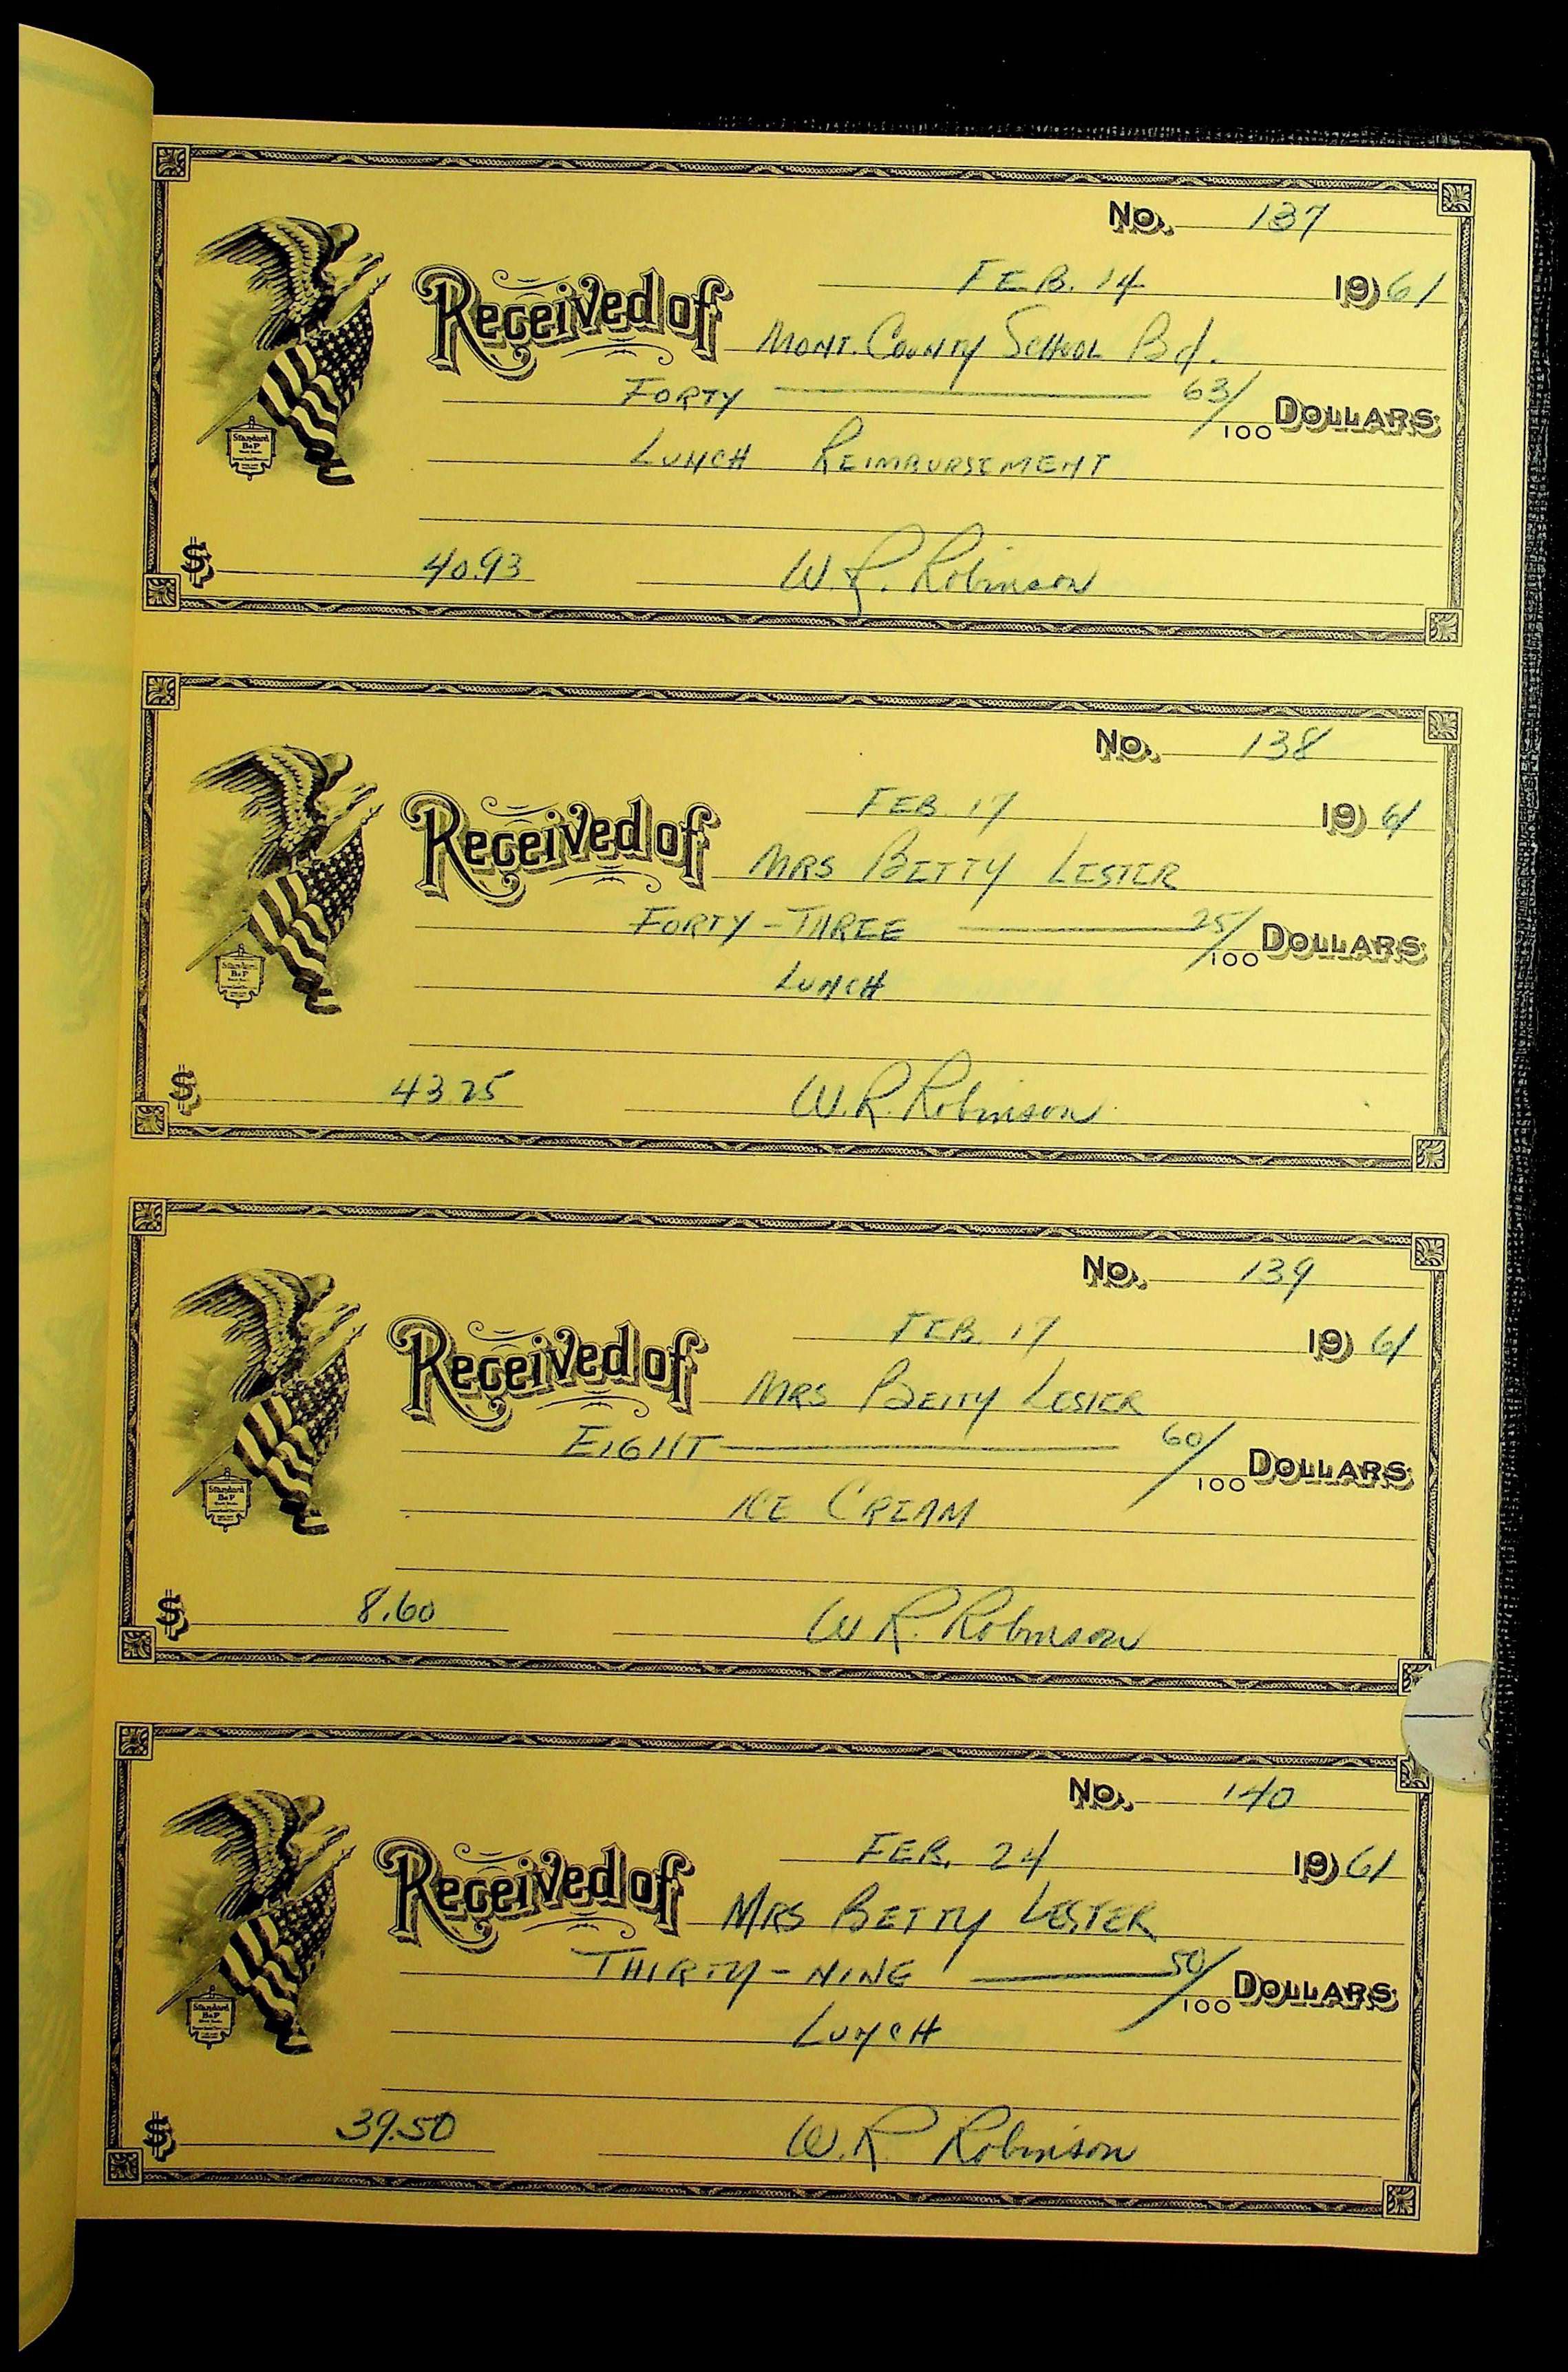 No. 137
FEB. 14 1961
Received of MONT. COUNTY SCHOOL Bd.
FORTY 63/100 DOLLARS
LUNCH REIMBURSEMENT
Standard
B&P
$ 40.93 W. R. Robinson
No. 138
FEB. 17 1961
Received of MRS BETTY LESTER
FORTY-THREE 25/100 DOLLARS
LUNCH
Standard
B&P
$ 43.25 W. R. Robinson
No. 139
FEB. 17 1961
Received of MRS BETTY LESTER
EIGHT 60/100 DOLLARS
ICE CREAM
Standard
B&P
$ 8.60 W R. Robinson
No. 140
FEB. 24 1961
Received of MRS BETTY LESTER
THIRTY-NINE 50/100 DOLLARS
LUNCH
Standard
B&P
$ 39.50 W. R. Robinson